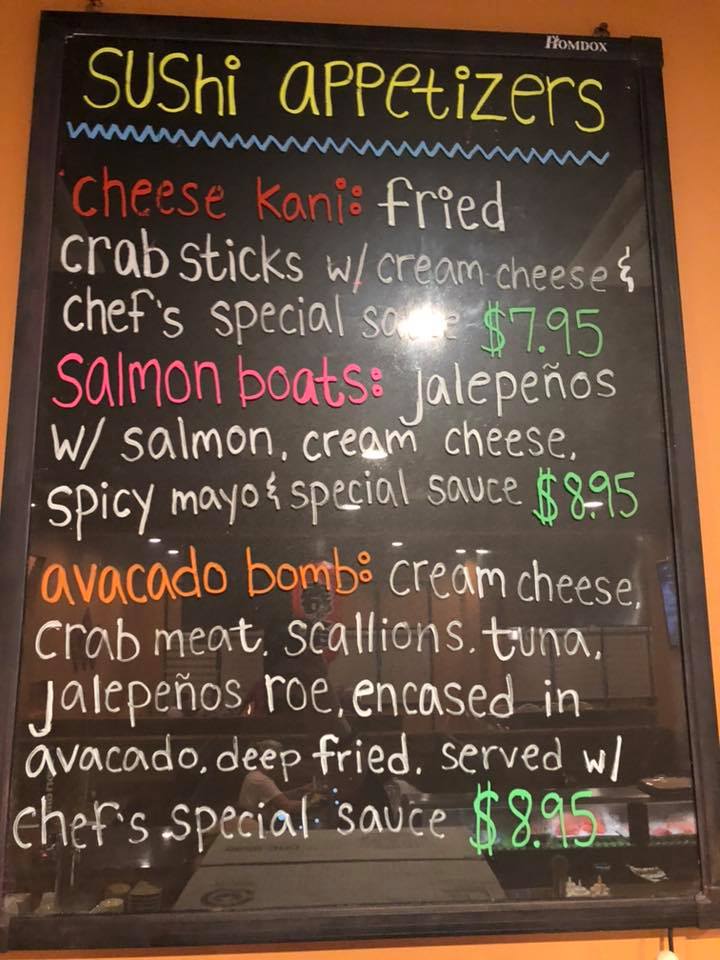 HOMDOX
Sushi appetizers
cheese kani: fried
crab sticks w/ cream cheese &
chef's special sauce $7.95
Salmon boats: jalepeños
w/ salmon, cream cheese,
spicy mayo & special sauce $8.95
avacado bomb: cream cheese,
crab meat, scallions, tuna,
jalepeños, roe, encased in
avacado, deep fried. served w/
chef's special sauce $8.95